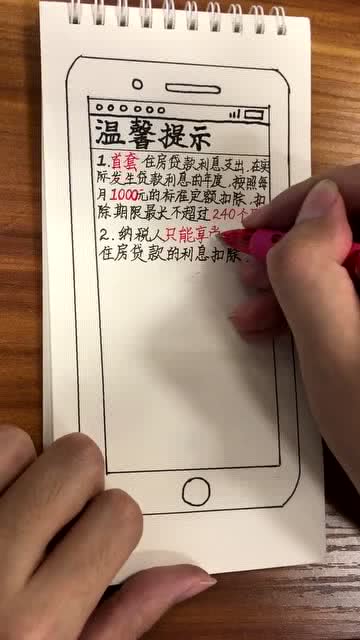 温馨提示
1.首套住房贷款利息支出,在实
际发生贷款利息的年度,按照每
月1000元的标准定额扣除,扣
除期限最长不超过240个
2.纳税人只能享
住房贷款的利息扣除.